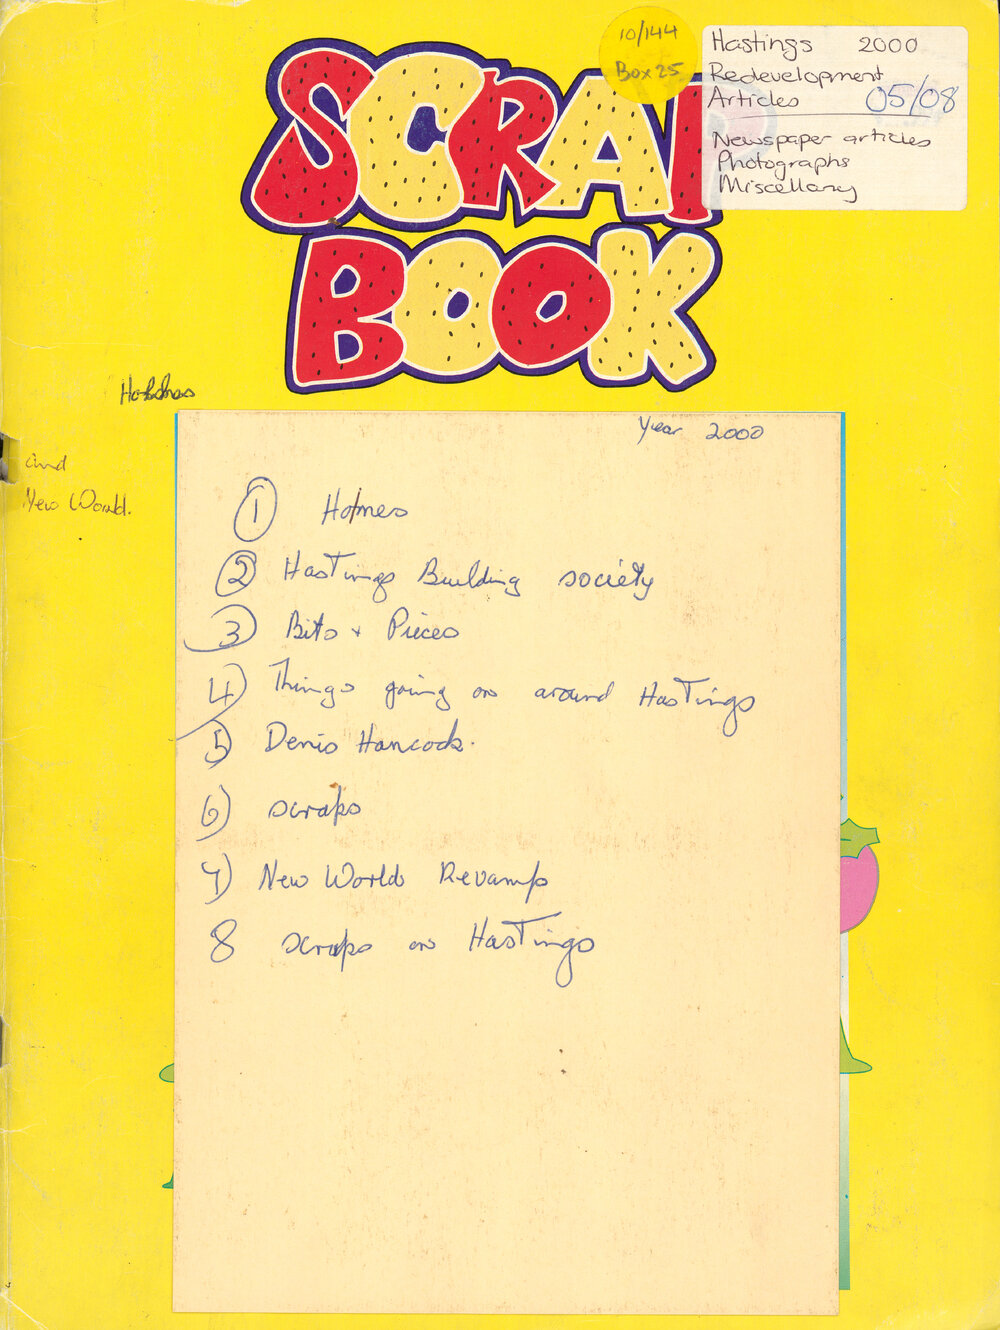 SCRAP
BOOK
10/144
Box 25
Hastings 2000
Redevelopment
Articles 05/08
Newspaper articles
Photographs
Miscellany
and
New World.
Year 2000
1 Holmes
2 Hastings Building society
3 Bits + Pieces
4) Things going on around Hastings
5) Denis Hancock.
6) scraps
7) New World Revamp
8 scraps on Hastings